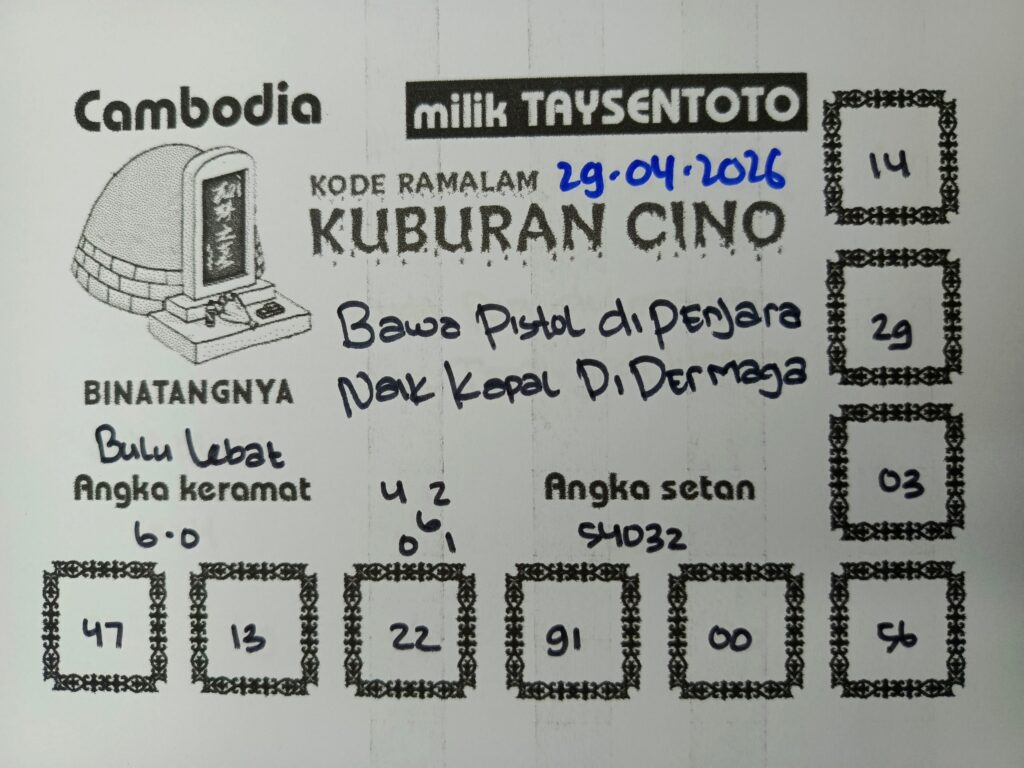 Cambodia
milik TAYSENTOTO
KODE RAMALAM 29.04.2026
KUBURAN CINO
Bawa Pistol di Penjara
Naik Kapal Di Dermaga
BINATANGNYA
Bulu Lebat
Angka keramat
6.0
4 2
6
0 1
Angka setan
54032
14
29
03
47 13 22 91 00 56